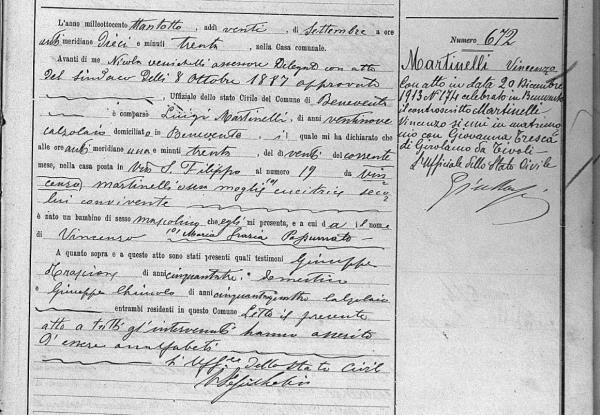 L'anno milleottocento ttantotto, addì venti di Settembre a ore
anti meridiane Dieci e minuti trenta, nella Casa comunale.
Avanti di me Nicola assessore Delegato con atto
del sindaco Delli 8 Ottobre 1887 approvato
Uffiziale dello Stato Civile del Comune di Benevento
è comparso Luigi Martinelli, di anni ventinove
calzolaio domiciliato in Benevento il quale mi ha dichiarato che
alle ore anti meridiane una e minuti trenta, del dì venti del corrente
mese, nella casa posta in Via S. Filippo al numero 19 da
martinelli sua moglie cucitrice seco
lui convivente
è nato un bambino di sesso mascolino che egli mi presenta, e a cui dà il nome
di Vincenzo (a) Maria Grazia
A quanto sopra e a questo atto sono stati presenti quali testimoni Giuseppe
di anni cinquantatre, domestico
e Giuseppe di anni cinquantaquattro calzolaio
entrambi residenti in questo Comune Letto il presente
atto a tutti gl'intervenuti hanno asserito
d'essere analfabeti
L'Uff.le dello Stato Civil
Numero 672
Martinelli Vincenzo
Con atto in data 20 Dicembre
1913 N° 174 celebrato in Benevento
il controscritto Martinelli
Vincenzo si unì in matrimo
nio con Giovanna Tresca
di Girolamo da Tivoli
L'Uffiziale dello Stato Civile